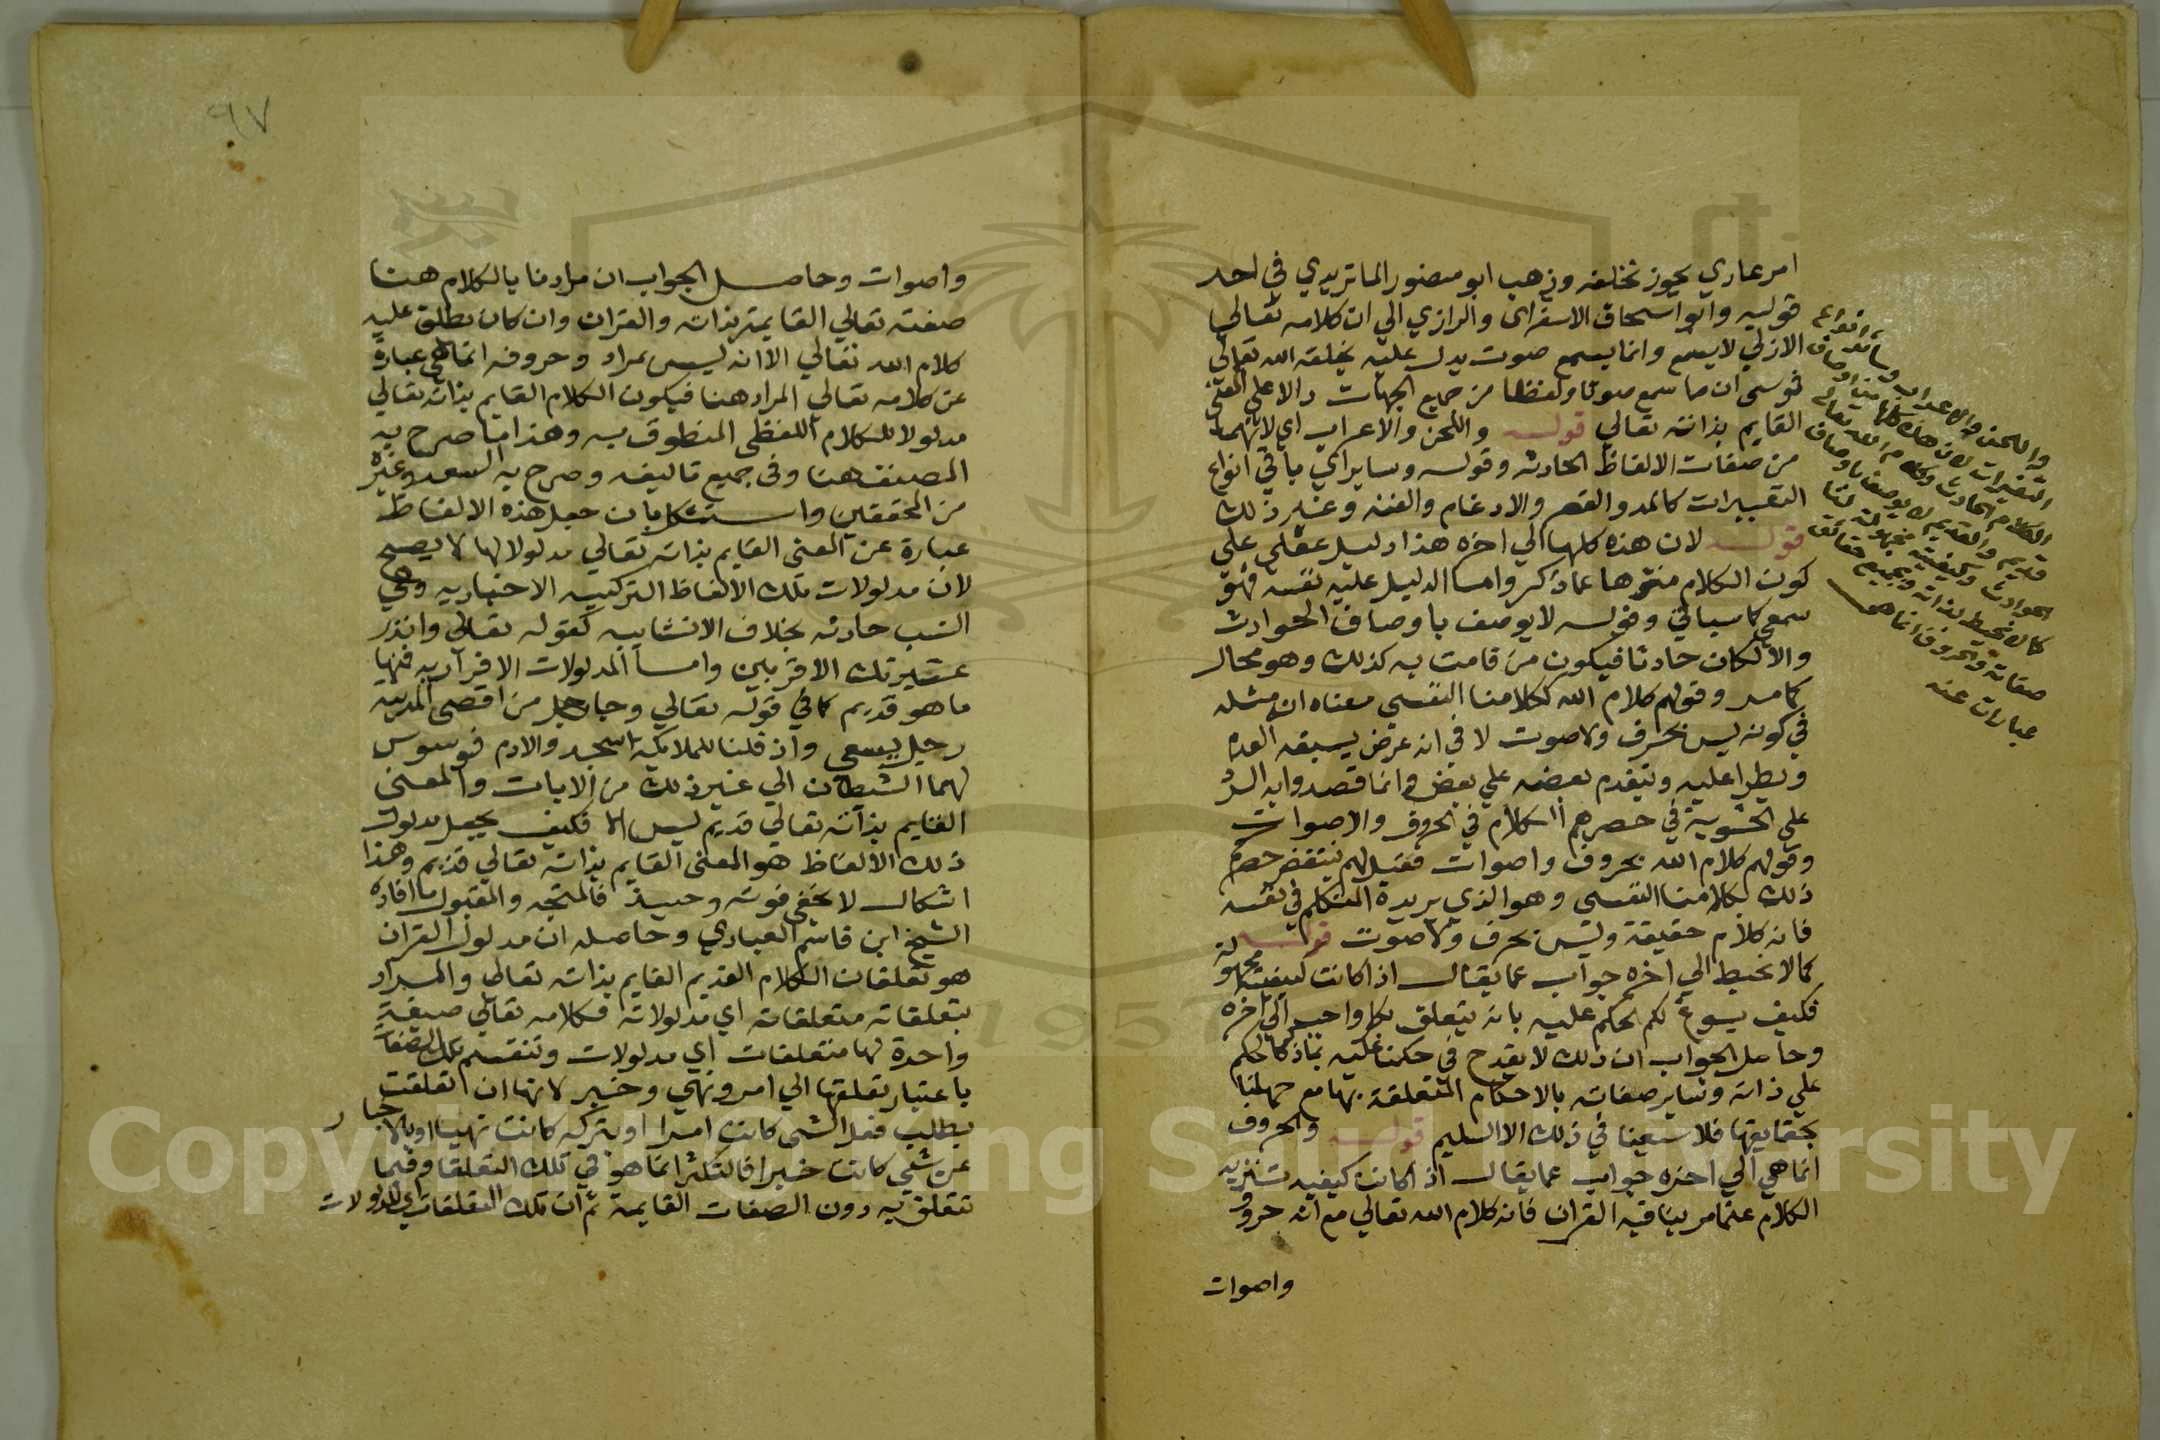 امر عادي يجوز تخلفه وذهب ابو منصور الماتريدي في احد
قوليه وابو اسحاق الاسفراى والرازي الي ان كلامه تعالي
الازلي لا يسمع وانما يسمع صوت يدل عليه يخلقه الله تعالي
فموسى انما سمع صوتا ولفظا من جميع الجهات دالا علي المعنى
القايم بذاته تعالي قوله واللحن والاعراب اي لانهما
من صفات الالفاظ الحادثه وقوله وساير اي باقي انواع
التغييرات كالمد والقصر والادغام والغنه وغير ذلك
قوله لان هذه كلها الي اخره هذا دليل عقلي علي
كون الكلام منزها عما ذكر واما الدليل عليه نفسه فهو
سمعي كما سياتي وقوله لا يوصف باوصاف الحوادث
والا لكان حادثا فيكون من قامت به كذلك وهو محال
كما مر وقولهم كلام الله ككلامنا النفسي معناه ان مثله
في كونه ليس بحرف ولا صوت لا في انه عرض يسبقه العدم
ويطرا عليه ويتقدم بعضه علي بعض وانما قصدوا به الرد
علي الحشوية في حصرهم الكلام في الحروف والاصوات
وقولهم كلام الله بحروف واصوات فقيل لهم ينتقض حصركم
ذلك بكلامنا النفسي وهو الذي يريده المتكلم في نفسه
فانه كلام حقيقة وليس بحرف ولا صوت قوله
كما لا نحيط الي اخره جواب عما يقال اذا كانت كيفيته مجهولة
فكيف يسوغ لكم الحكم عليه بانه يتعلق بكل واجب الي اخره
وحاصل الجواب ان ذلك لا يقدح في حكمنا عليه بما ذكر كما حكم
علي ذاته وساير صفاته بالاحكام المتعلقة بها مع جهلنا
بحقايقها فلا يسعنا في ذلك الا السليم قوله والحروف
انما هي الي اخره جواب عما يقال اذا كانت كيفيه تنزيه
الكلام عما مر ينافيه القران فانه كلام الله تعالي مع انه حروف
واصوات
واللحن والاعراب وسائر انواع
التغيرات لان هذه كلها من اوصاف
الكلام الحادث وكلام الله تعالى
قديم والقديم لا يوصف باوصاف
الحوادث وكيفيته مجهولة لنا
كما لا نحيط بذاته وبجميع حقائق
صفاته والحروف انما هى
عبارات عنه
٩٧
واصوات وحاصل الجواب ان مرادنا بالكلام هنا
صفته تعالي القايمة بذاته والقران وان كان يطلق عليه
كلام الله تعالي الا انه ليس بمراد وحروفه انما هي عبارة
عن كلامه تعالي المراد هنا فيكون الكلام القايم بذاته تعالي
مدلولا للكلام اللفظي المنطوق به وهذا ما صرح به
المصنف هنا وفى جميع تاليفه وصرح به السعد وغيره
من المحققين واستشكل بان جعل هذه الالفاظ
عبارة عن المعنى القايم بذاته تعالي مدلولا لها لا يصح
لان مدلولات تلك الالفاظ التركيبيه الاخباريه وهي
النسب حادثه بخلاف الانشائيه كقوله تعالى وانذر
عشيرتك الاقربين واما المدلولات الافراديه فمنها
ما هو قديم كما في قوله تعالي وجا رجل من اقصى المدينة
رجل يسعى واذ قلنا للملايكة اسجدوا لادم فوسوس
لهما الشيطان الي غير ذلك من الايات والمعنى
القايم بذاته تعالي قديم ليس الا فكيف يجعل مدلول
ذلك الالفاظ هو المعنى القايم بذاته تعالي قديم وهذا
اشكال لا يخفي قوته وحينئذ فالمتجه والمقبول ما افاده
الشيخ ابن قاسم العبادي وحاصله ان مدلول القران
هو تعلقات الكلام القديم القايم بذاته تعالى والمراد
بتعلقاته متعلقاته اي مدلولاته فكلامه تعالي صفة
واحدة لها متعلقات اي مدلولات وتنقسم تلك الصفات
باعتبار تعلقها الي امر ونهي وخبر لانها ان تعلقت
بطلب فعل الشى كانت امرا او بتركه كانت نهيا او بالاخبار
عن شي كانت خبرا فالتكثر انما هو في تلك التعلقات وفيما
تتعلق به دون الصفات القايمة ثم ان تلك التعلقات اي المدلولات